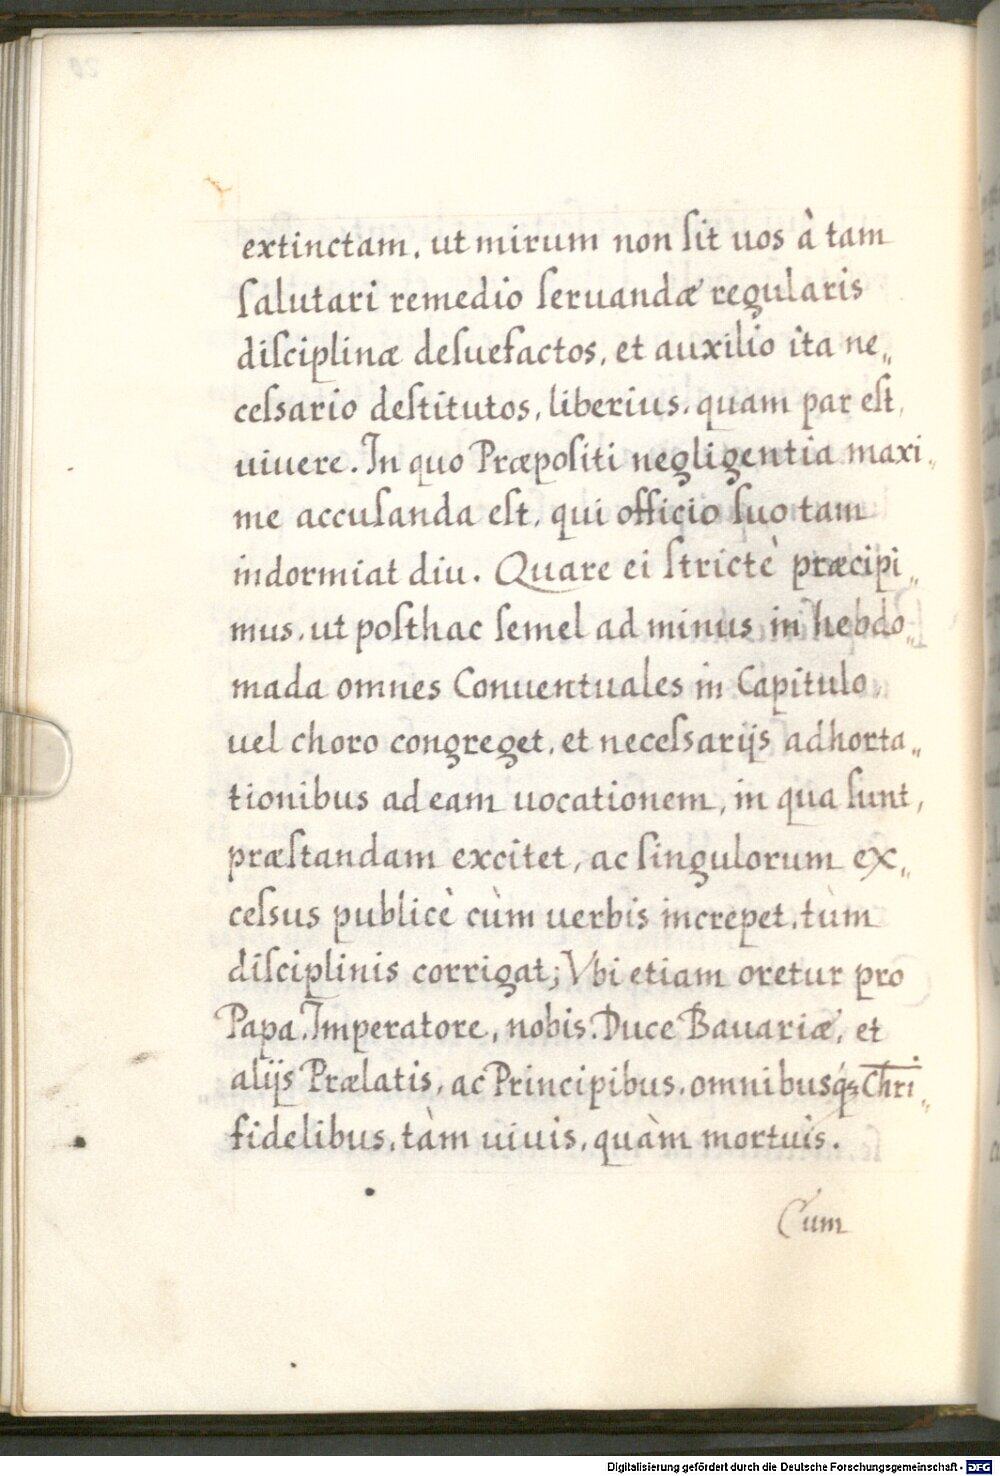 extinctam, ut mirum non ſit uos à tam
ſalutari remedio ſeruandæ regularis
diſciplinæ deſuefactos, et auxilio ita ne„
ceſsario deſtitutos, liberius, quam par eſt,
uiuere. In quo Præpoſiti negligentia maxi„
me accuſanda eſt, qui officio ſuo tam
indormiat diu. Quare ei ſtrictè præcipi„
mus, ut poſthac ſemel ad minus in hebdo„
mada omnes Conuentuales in Capitulo,
uel choro congreget, et neceſsarijs adhorta„
tionibus ad eam uocationem, in qua ſunt,
præſtandam excitet, ac ſingulorum ex„
ceſsus publicè cùm uerbis increpet, tùm
diſciplinis corrigat; Vbi etiam oretur pro
Papa, Imperatore, nobis, Duce Bauariæ, et
alijs Prælatis, ac Principibus, omnibusq́ꝫ Chri„
fidelibus, tàm uiuis, quàm mortuis.
Cum
Digitalisierung gefördert durch die Deutsche Forschungsgemeinschaft - DFG